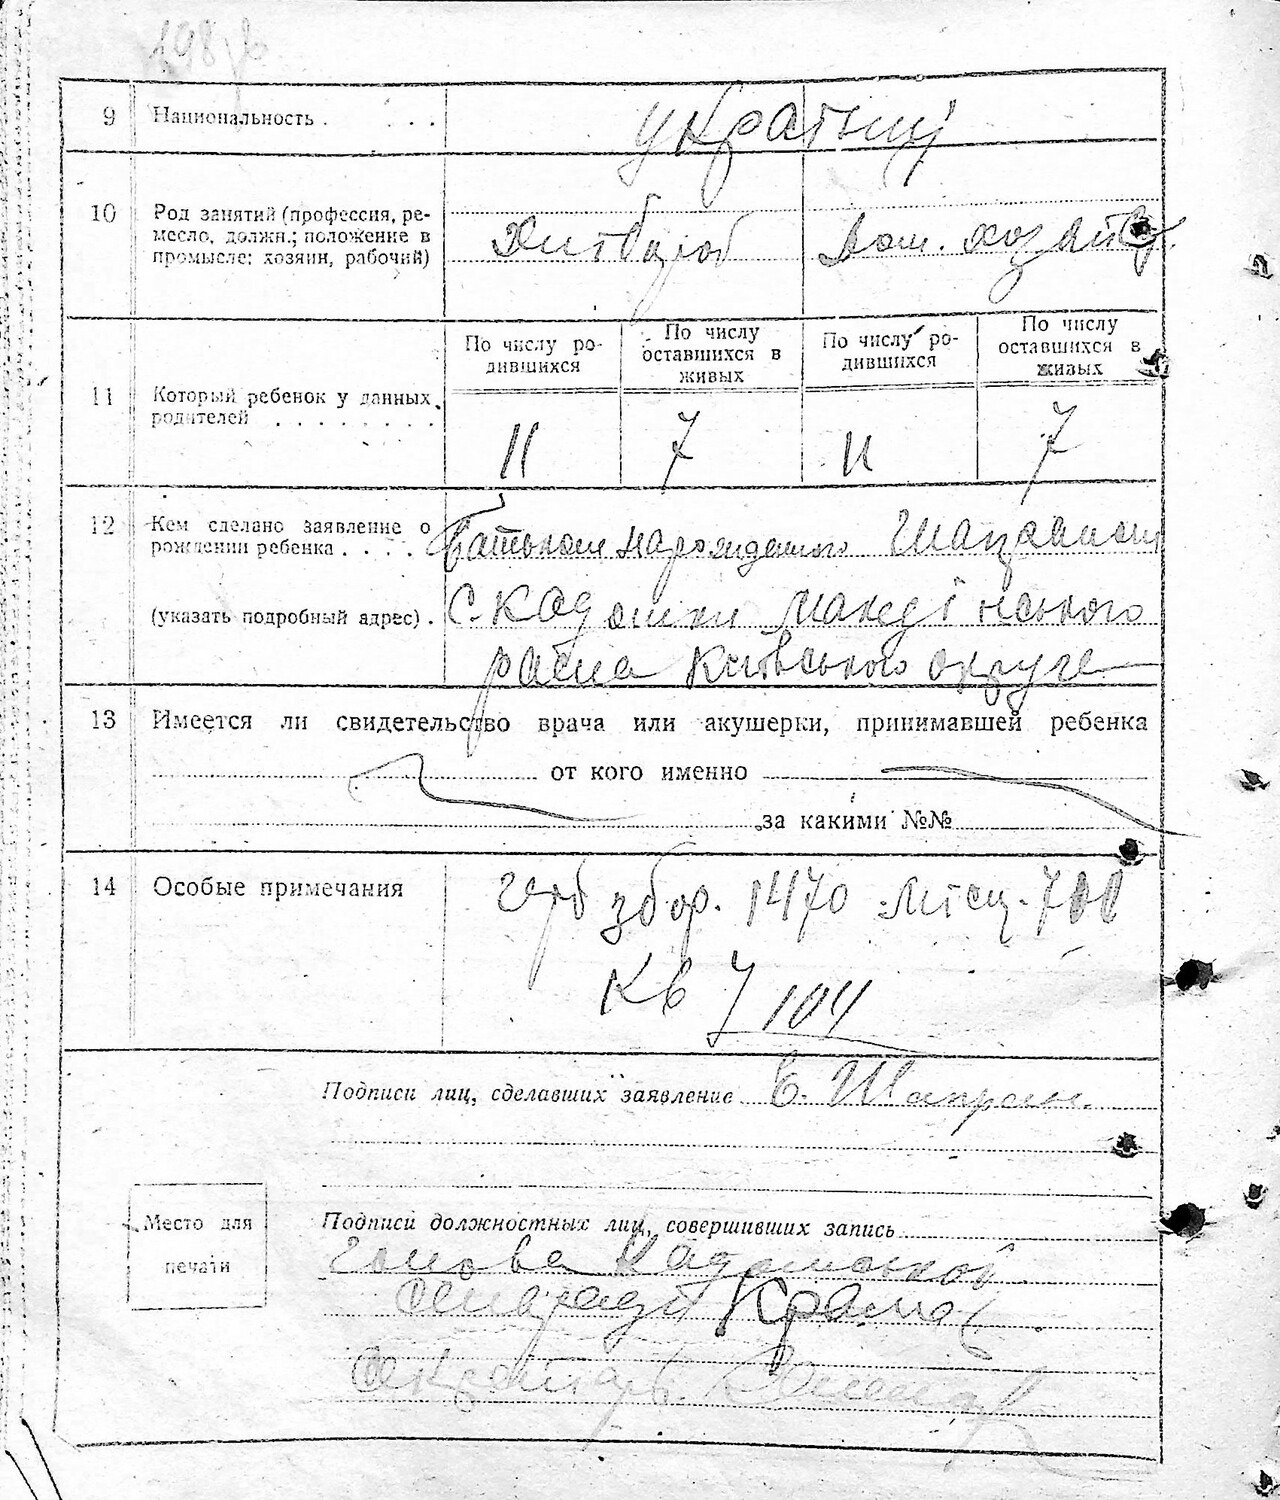 198
9 Национальность . . . . українці
10 Род занятий (профессия, ре-
месло, должн.; положение в
промысле: хозяин, рабочий)
Хлібороб Дом. хозяйка
По числу ро-
дившихся
По числу
оставшихся в
живых
По числу ро-
дившихся
По числу
оставшихся в
живых
11 Который ребенок у данных
родителей . . . . . . . .
11 7 11 7
12 Кем сделано заявление о
рождении ребенка . . . .
Батьком народженого
(указать подробный адрес) .
с. Кадомки
района Київського округа
13 Имеется ли свидетельство врача или акушерки, принимавшей ребенка
от кого именно
за какими №№
14 Особые примечания
герб збор. 1470 місц. 700
Кв 7/104
Подписи лиц, сделавших заявление Е. Шапран
Место для
печати
Подписи должностных лиц, совершивших запись
Голова Кадомської
сільради
Секретарь